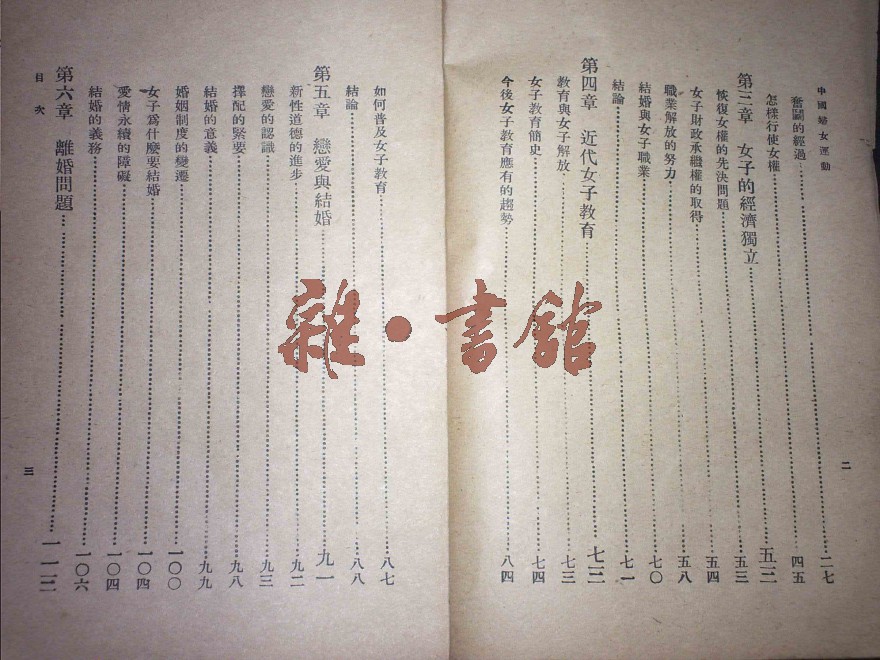 中國婦女運動
奮鬬的經過……二七
怎樣行使女權……四五
第三章　女子的經濟獨立……五三
恢復女權的先決問題……五三
女子財政承繼權的取得……五四
職業解放的努力……五八
結婚與女子職業……七〇
結論……七一
第四章　近代女子教育……七三
教育與女子解放……七三
女子教育簡史……七四
今後女子教育應有的趨勢……八四
二
如何普及女子教育……八七
結論……八八
第五章　戀愛與結婚……九一
新性道德的進步……九二
戀愛的認識……九三
擇配的緊要……九八
結婚的意義……九九
婚姻制度的變遷……一〇〇
女子爲什麼要結婚……一〇四
愛情永續的障礙……一〇四
結婚的義務……一〇六
第六章　離婚問題……一一三
目次
三
雜・書舘